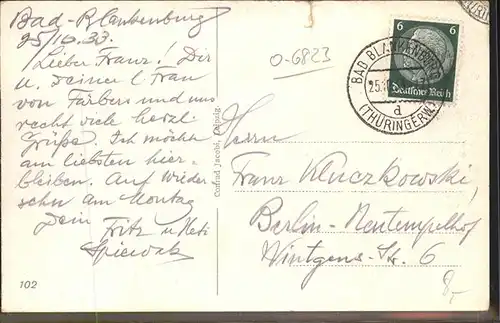 Bad-Blankenburg
25/10.33.
Lieber Franz! Dir
u. Deiner l. Frau
von Färbers und uns
recht viele herzl.
Grüße. Ich möchte
am liebsten hier-
bleiben. Auf Wieder-
sehn am Montag
Dein
Fritz u.
Conrad Jacobi, Leipzig.
102
0-6823
6 6
Deutsches Reich
BAD BLANKENBURG
25.10
d
(THÜRINGERW.)
Herrn
Franz Kluczkowski,
Berlin-Neutempelhof
Wintgens-Str. 6
8,-